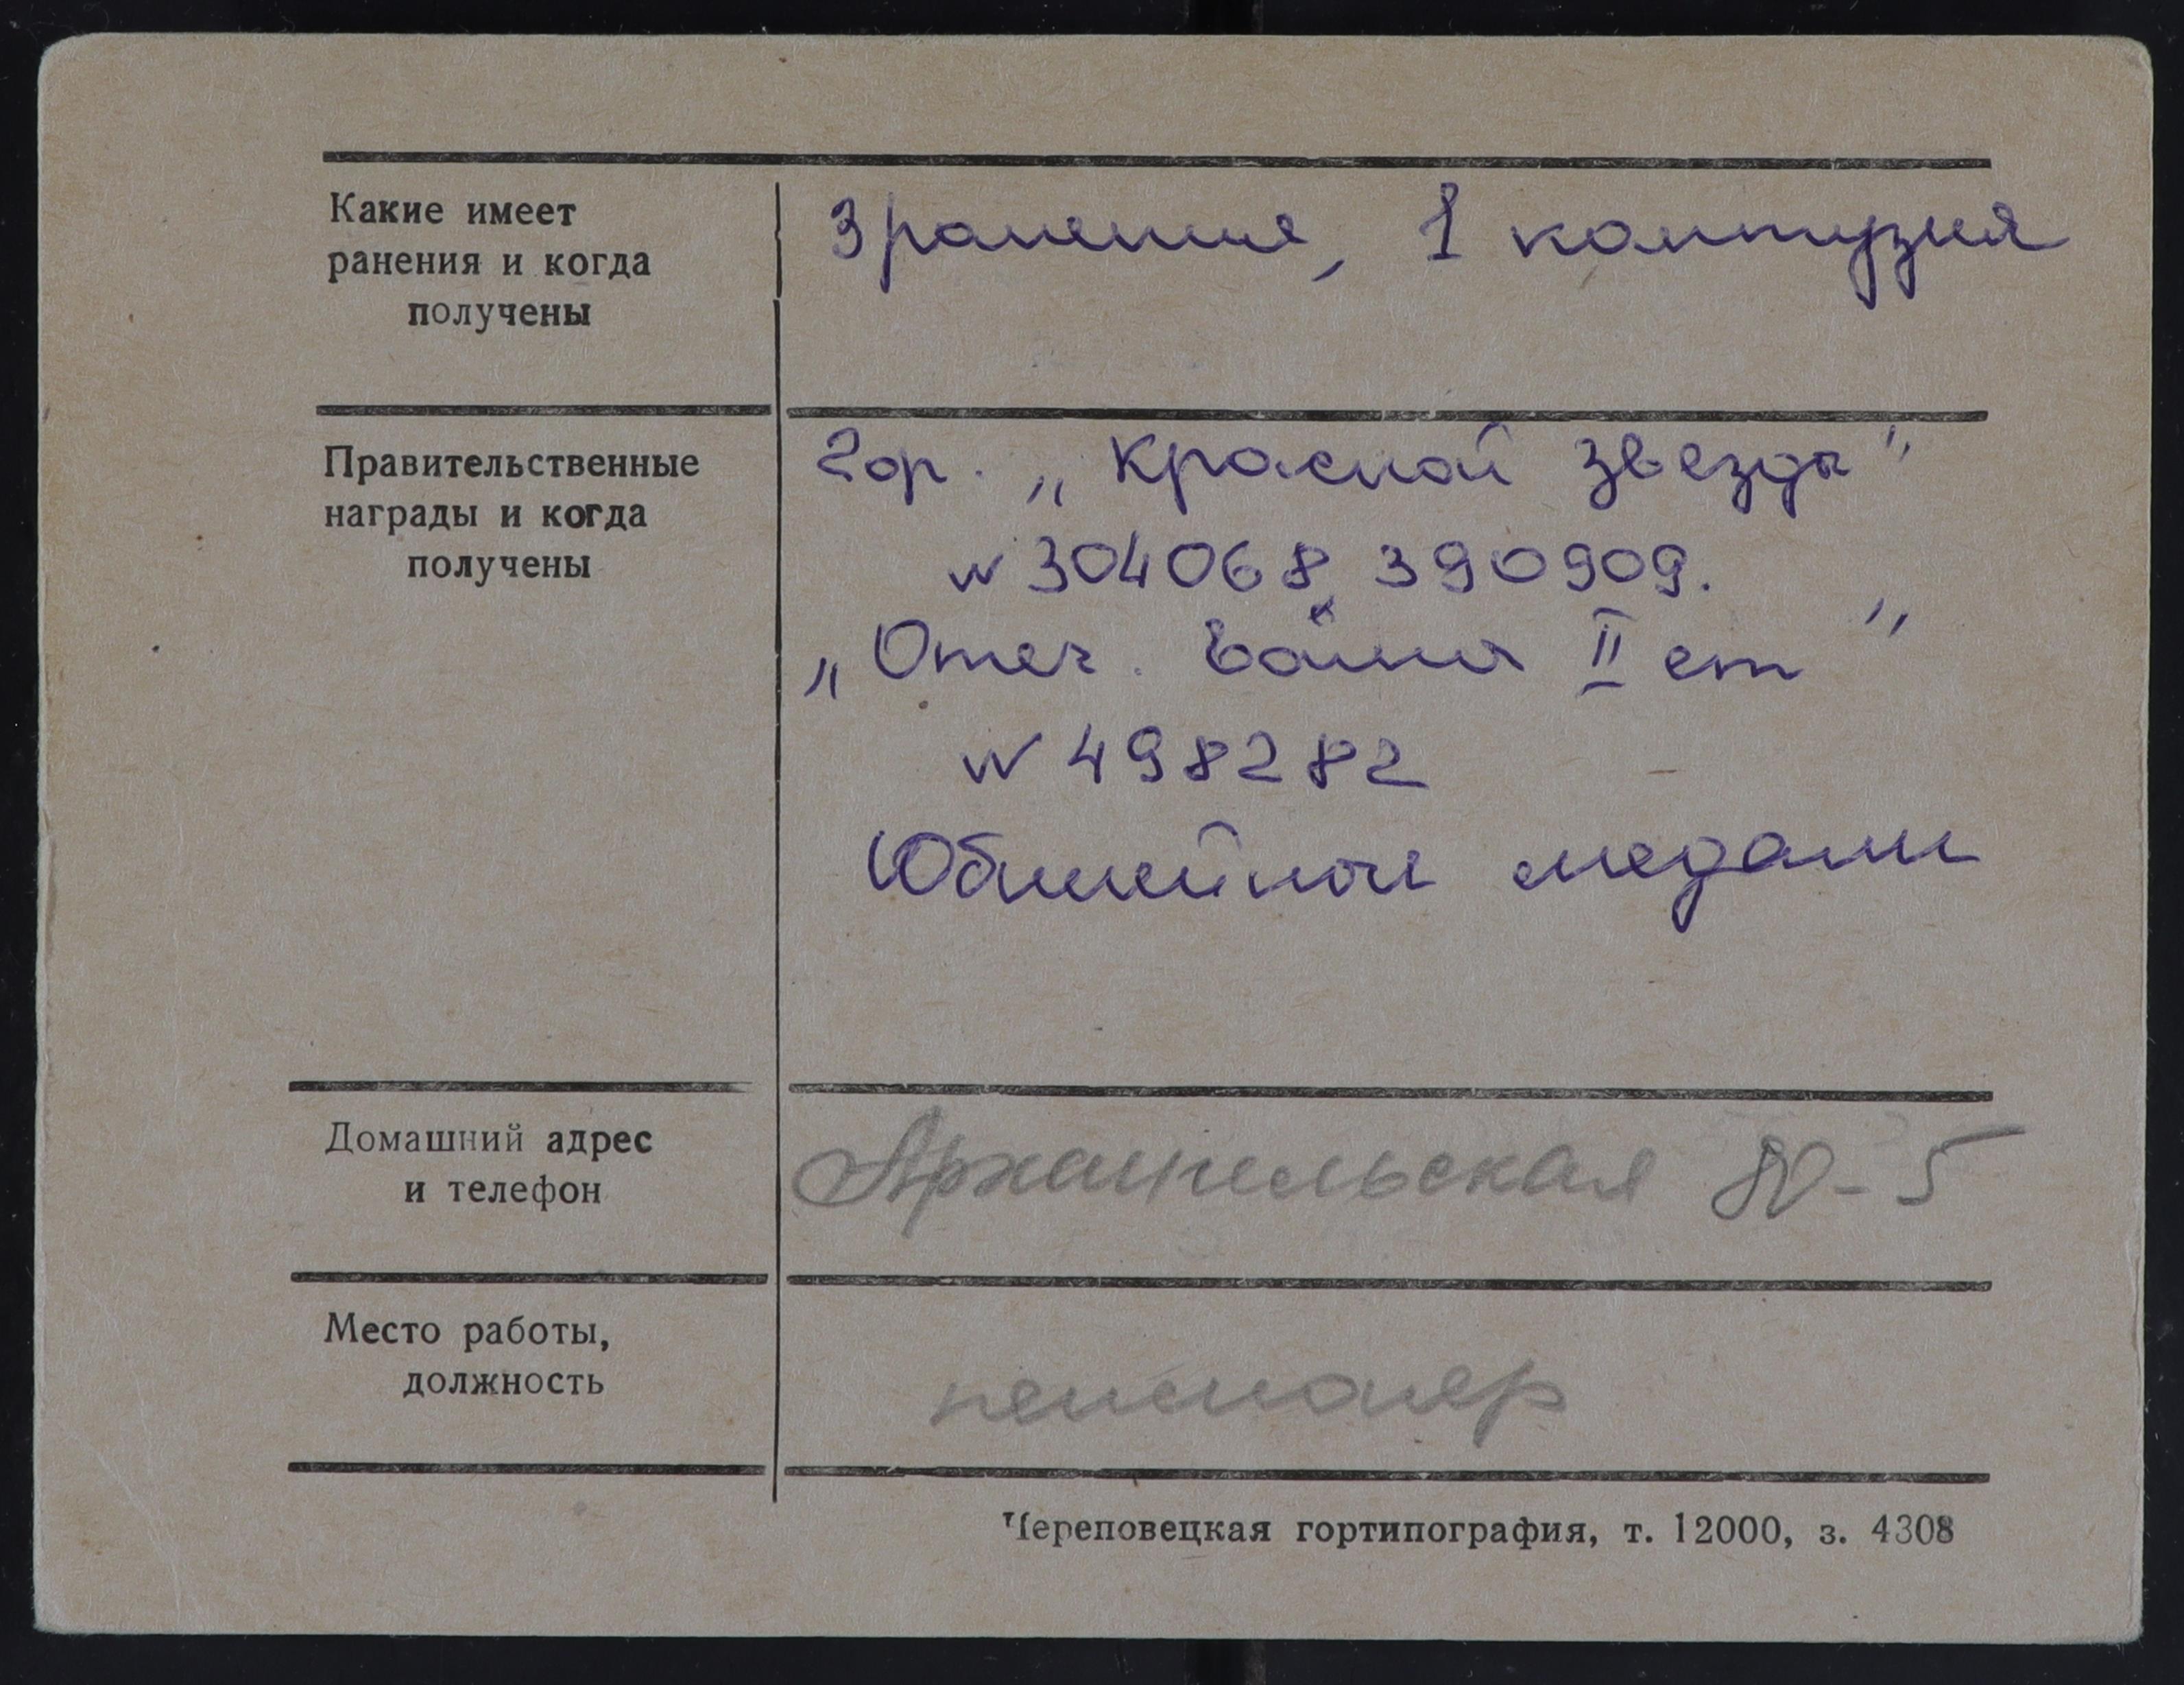 Какие имеет
ранения и когда
получены
3 ранения, 1 контузия
Правительственные
награды и когда
получены
2 ор. „Красной звезды"
N 304068, 390909.
„Отеч. война II ст"
N 498282
Юбилейные медали
Домашний адрес
и телефон
Архангельская 80-5
Место работы,
должность
пенсионер
Череповецкая гортипография, т. 12000, з. 4308